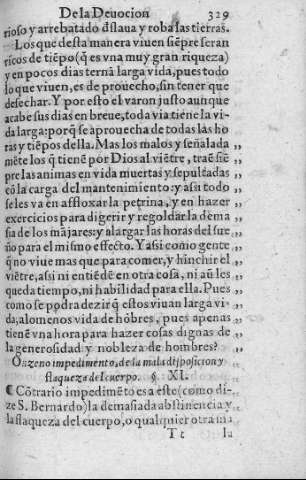 De la Deuocion 329
rioso y arrebatado dslaua y roba las tierras.
Los que desta manera viuen siẽpre seran
ricos de tiẽpo (q̃ es vna muy gran riqueza)
y en pocos dias ternã larga vida, pues todo
lo que viuen, es de prouecho, sin tener que
desechar. Y por esto el varon justo aunque
acabe sus dias en breue, toda via tiene la vi-
da larga: porq̃ se aprouecha de todas las ho
ras y tiẽpos della. Mas los malos y señalada
mẽte los q̃ tienẽ por Dios al viẽtre, traẽ siẽ
pre las animas en vida muertas y sepultadas
cõ la carga del mantenimiento: y asi todo
se les va en affloxar la petrina, y en hazer
exercicios para digerir y regoldar la dema
sia de los mãjares: y alargar las horas del sue
ño para el mismo effecto. Y asi como gente
q̃ no viue mas que para comer, y hinchir el
viẽtre, asi ni entiẽdẽ en otra cosa, ni aũ les
queda tiempo, ni habilidad para ella. Pues
como se podra dezir q̃ estos viuan larga vi-
da, alomenos vida de hõbres, pues apenas
tienẽ vna hora para hazer cosas dignas de
la generosidad y nobleza de hombres?
Onzeno impedimento, de la mala disposicion y
flaqueza del cuerpo. §. XI.
¶ Cõtrario impedimẽto es a este (como di-
ze S. Bernardo) la demasiada abstinencia y
la flaqueza del cuerpo, o qualquier otra ma
Tt la